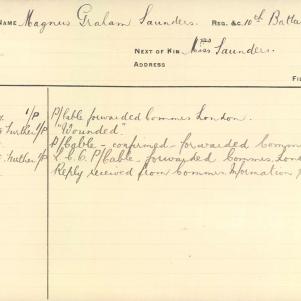 NAME Magnus Graham Saunders. REG. &C. 10th Batta
NEXT OF KIN Miss Saunders.
ADDRESS
FI
1/P P/Cable forwarded Commes London.
Further 1/P "Wounded"
P/Cable - confirmed - forwarded Comm
Further 1/P L.C.C. P/Cable - forwarded Commes. Lon
Reply received from Commes Information